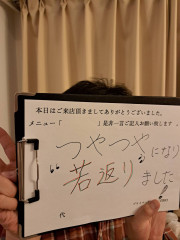 本日はご来店頂きましてありがとうございました。
メニュー「 」是非一言ご記入お願い致します。
つやつや
"若返り"になり
ました!!
代